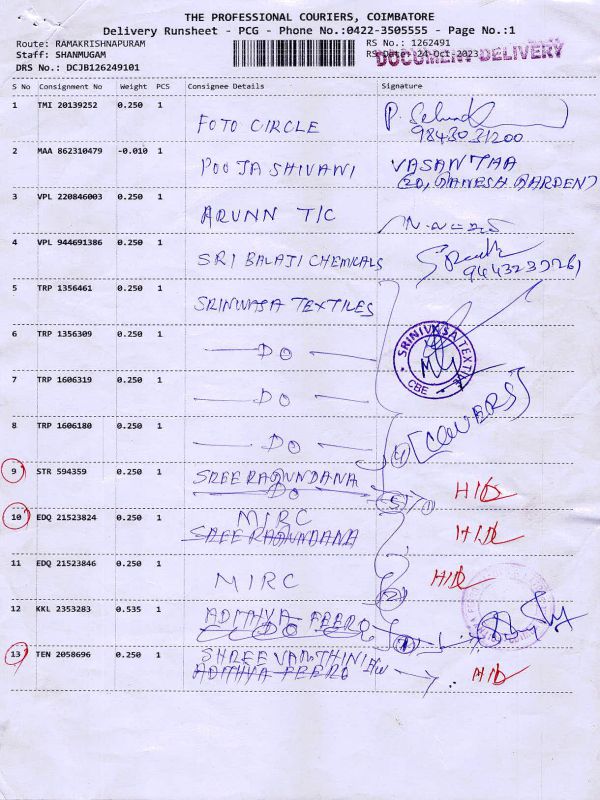 THE PROFESSIONAL COURIERS, COIMBATORE
Delivery Runsheet - PCG - Phone No.:0422-3505555 - Page No.:1
Route: RAMAKRISHNAPURAM
RS No.: 1262491
Staff: SHANMUGAM
RS Date: 24-Oct-2023
DOCUMENT DELIVERY
DRS No.: DCJB126249101
S No Consignment No Weight PCS Consignee Details Signature
1 TMI 20139252 0.250 1 FOTO CIRCLE
9843031200
2 MAA 862310479 -0.010 1 POOJA SHIVANI VASANTHA
(20, GANESH GARDEN)
3 VPL 220846003 0.250 1 ARUNN T/C
4 VPL 944691386 0.250 1 SRI BALAJI CHEMICALS
5 TRP 1356461 0.250 1 SRINIVASA TEXTILES
6 TRP 1356309 0.250 1 DO
SRINIVASA TEXTILE
CBE
7 TRP 1606319 0.250 1 DO
8 TRP 1606180 0.250 1 DO
4 [COVERS]
9 STR 594359 0.250 1 SREE RAGUNDANA
DO
H/D
10 EDQ 21523824 0.250 1 MIRC
SREE RAGUNDANA
H/D
11 EDQ 21523846 0.250 1 MIRC H/D
2
12 KKL 2353283 0.535 1 ADITHYA FEERO
DO
13 TEN 2058696 0.250 1 SHREE VARTHINI
ADITHYA FEERO
H/D